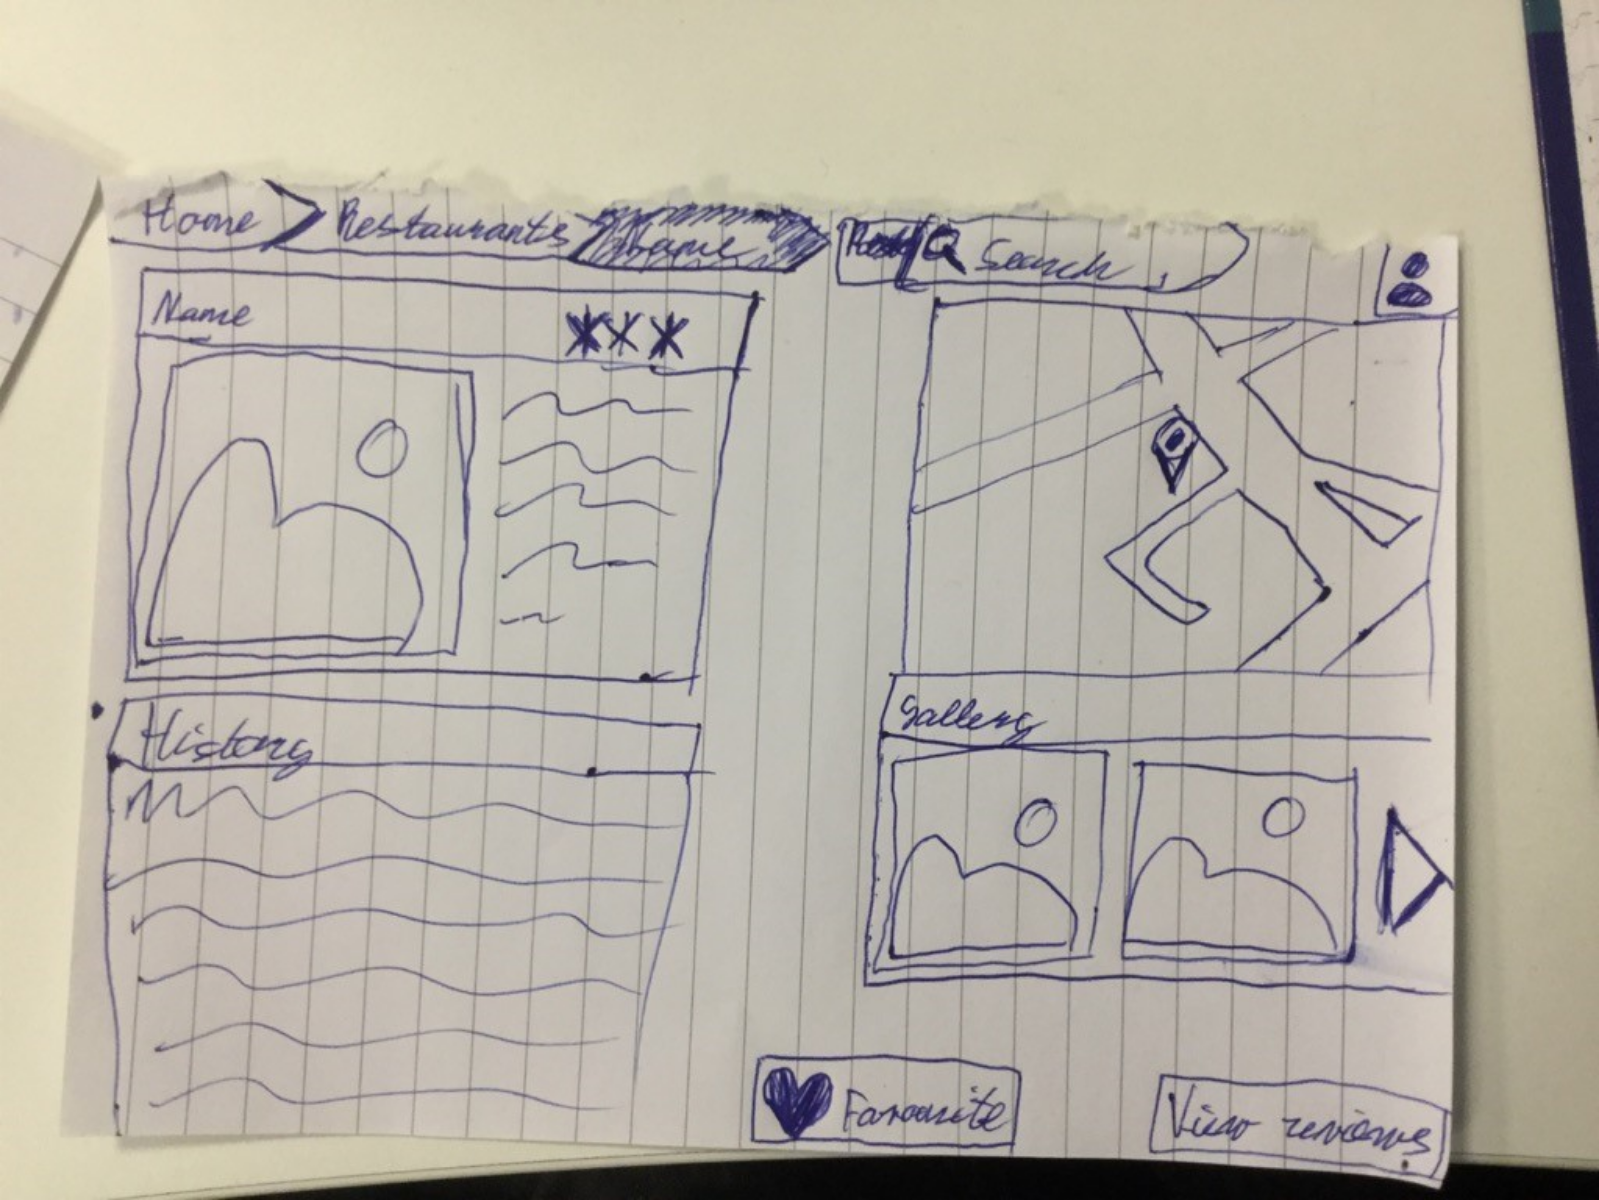 Home Restaurants Name
Search
Name
History
Gallery
Favourite
View reviews